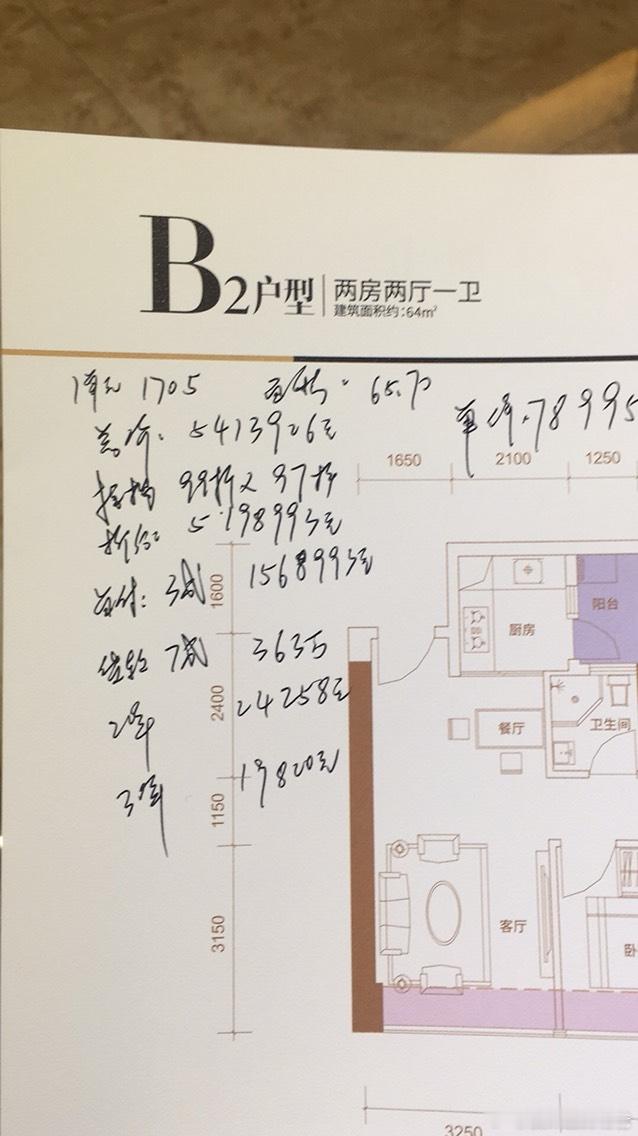 B2户型 两房两厅一卫
建筑面积约:64m²
1单元 1705 面积: 65.70 单价.78995
总价: 5413926元
按揭 99折 x 97折
折后: 5198993元
首付: 3成 1568993元
贷款 7成 363万
20年 24258元
30年 19820元
1650 2100 1250
1600
2400
1150
3150
3250
厨房
阳台
餐厅
卫生间
客厅
卧